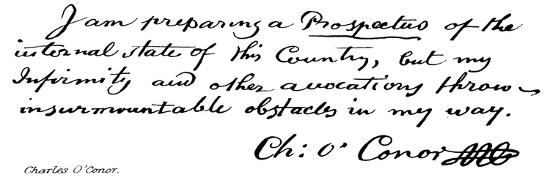 I am preparing a Prospectus of the
internal state of this Country, but my
Infirmity and other avocations throw
insurmountable obstacles in my way.
Ch: O' Conor
Charles O'Conor.